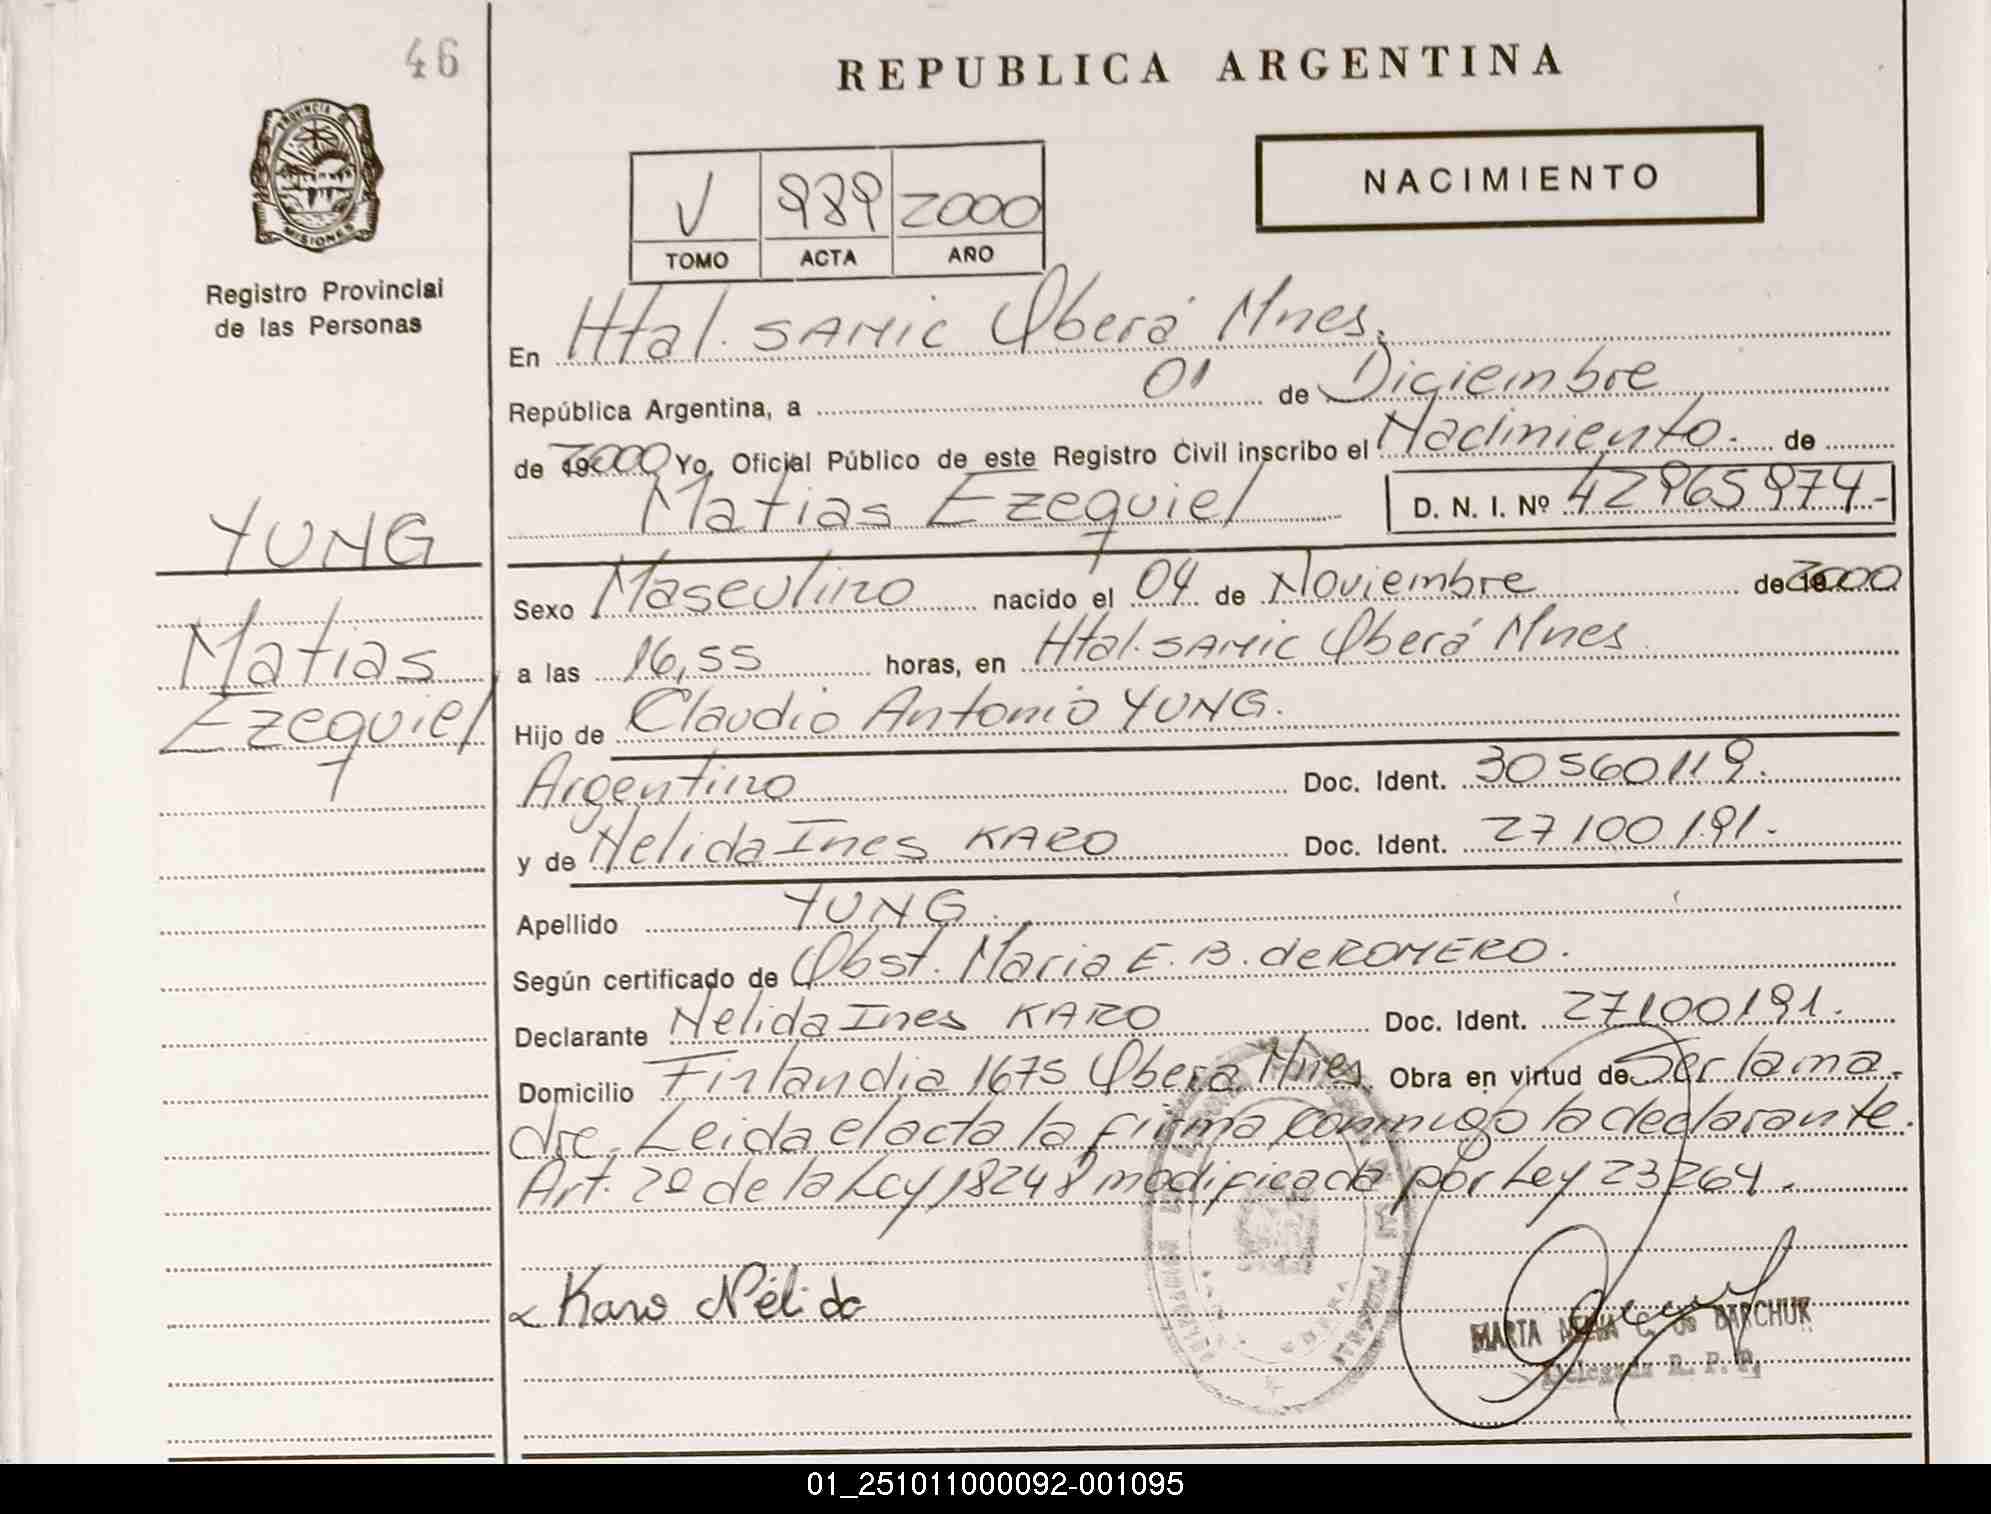 46
REPUBLICA ARGENTINA
PROVINCIA DE
MISIONES
Registro Provincial
de las Personas
NACIMIENTO
V 989 2000
TOMO ACTA AÑO
En Htal. SAMIC Oberá Mnes.
República Argentina, a 01 de Diciembre
de 2000 Yo, Oficial Público de este Registro Civil inscribo el Nacimiento.- de
Matias Ezequiel D. N. I. Nº 42965974.-
YUNG
Matias
Ezequiel
Sexo Masculino nacido el 04 de Noviembre de 2000
a las 16,55 horas, en Htal. SAMIC Oberá Mnes
Hijo de Claudio Antonio YUNG.
Argentino Doc. Ident. 30560119.
y de Nelida Ines KARO Doc. Ident. 27100191.-
Apellido YUNG.
Según certificado de Obst. Maria E. B. de ROMERO.
Declarante Nelida Ines KARO Doc. Ident. 27100191.
Domicilio Finlandia 1675 Oberá Mnes. Obra en virtud de Ser la ma-
dre. Leida el acta la firma conmigo la declarante.
Art. 2º de la Ley 18248 modificada por Ley 23264.
Karo Nélida
MARTA C. de BARCHUK
Delegada R. P. P.
01_251011000092-001095